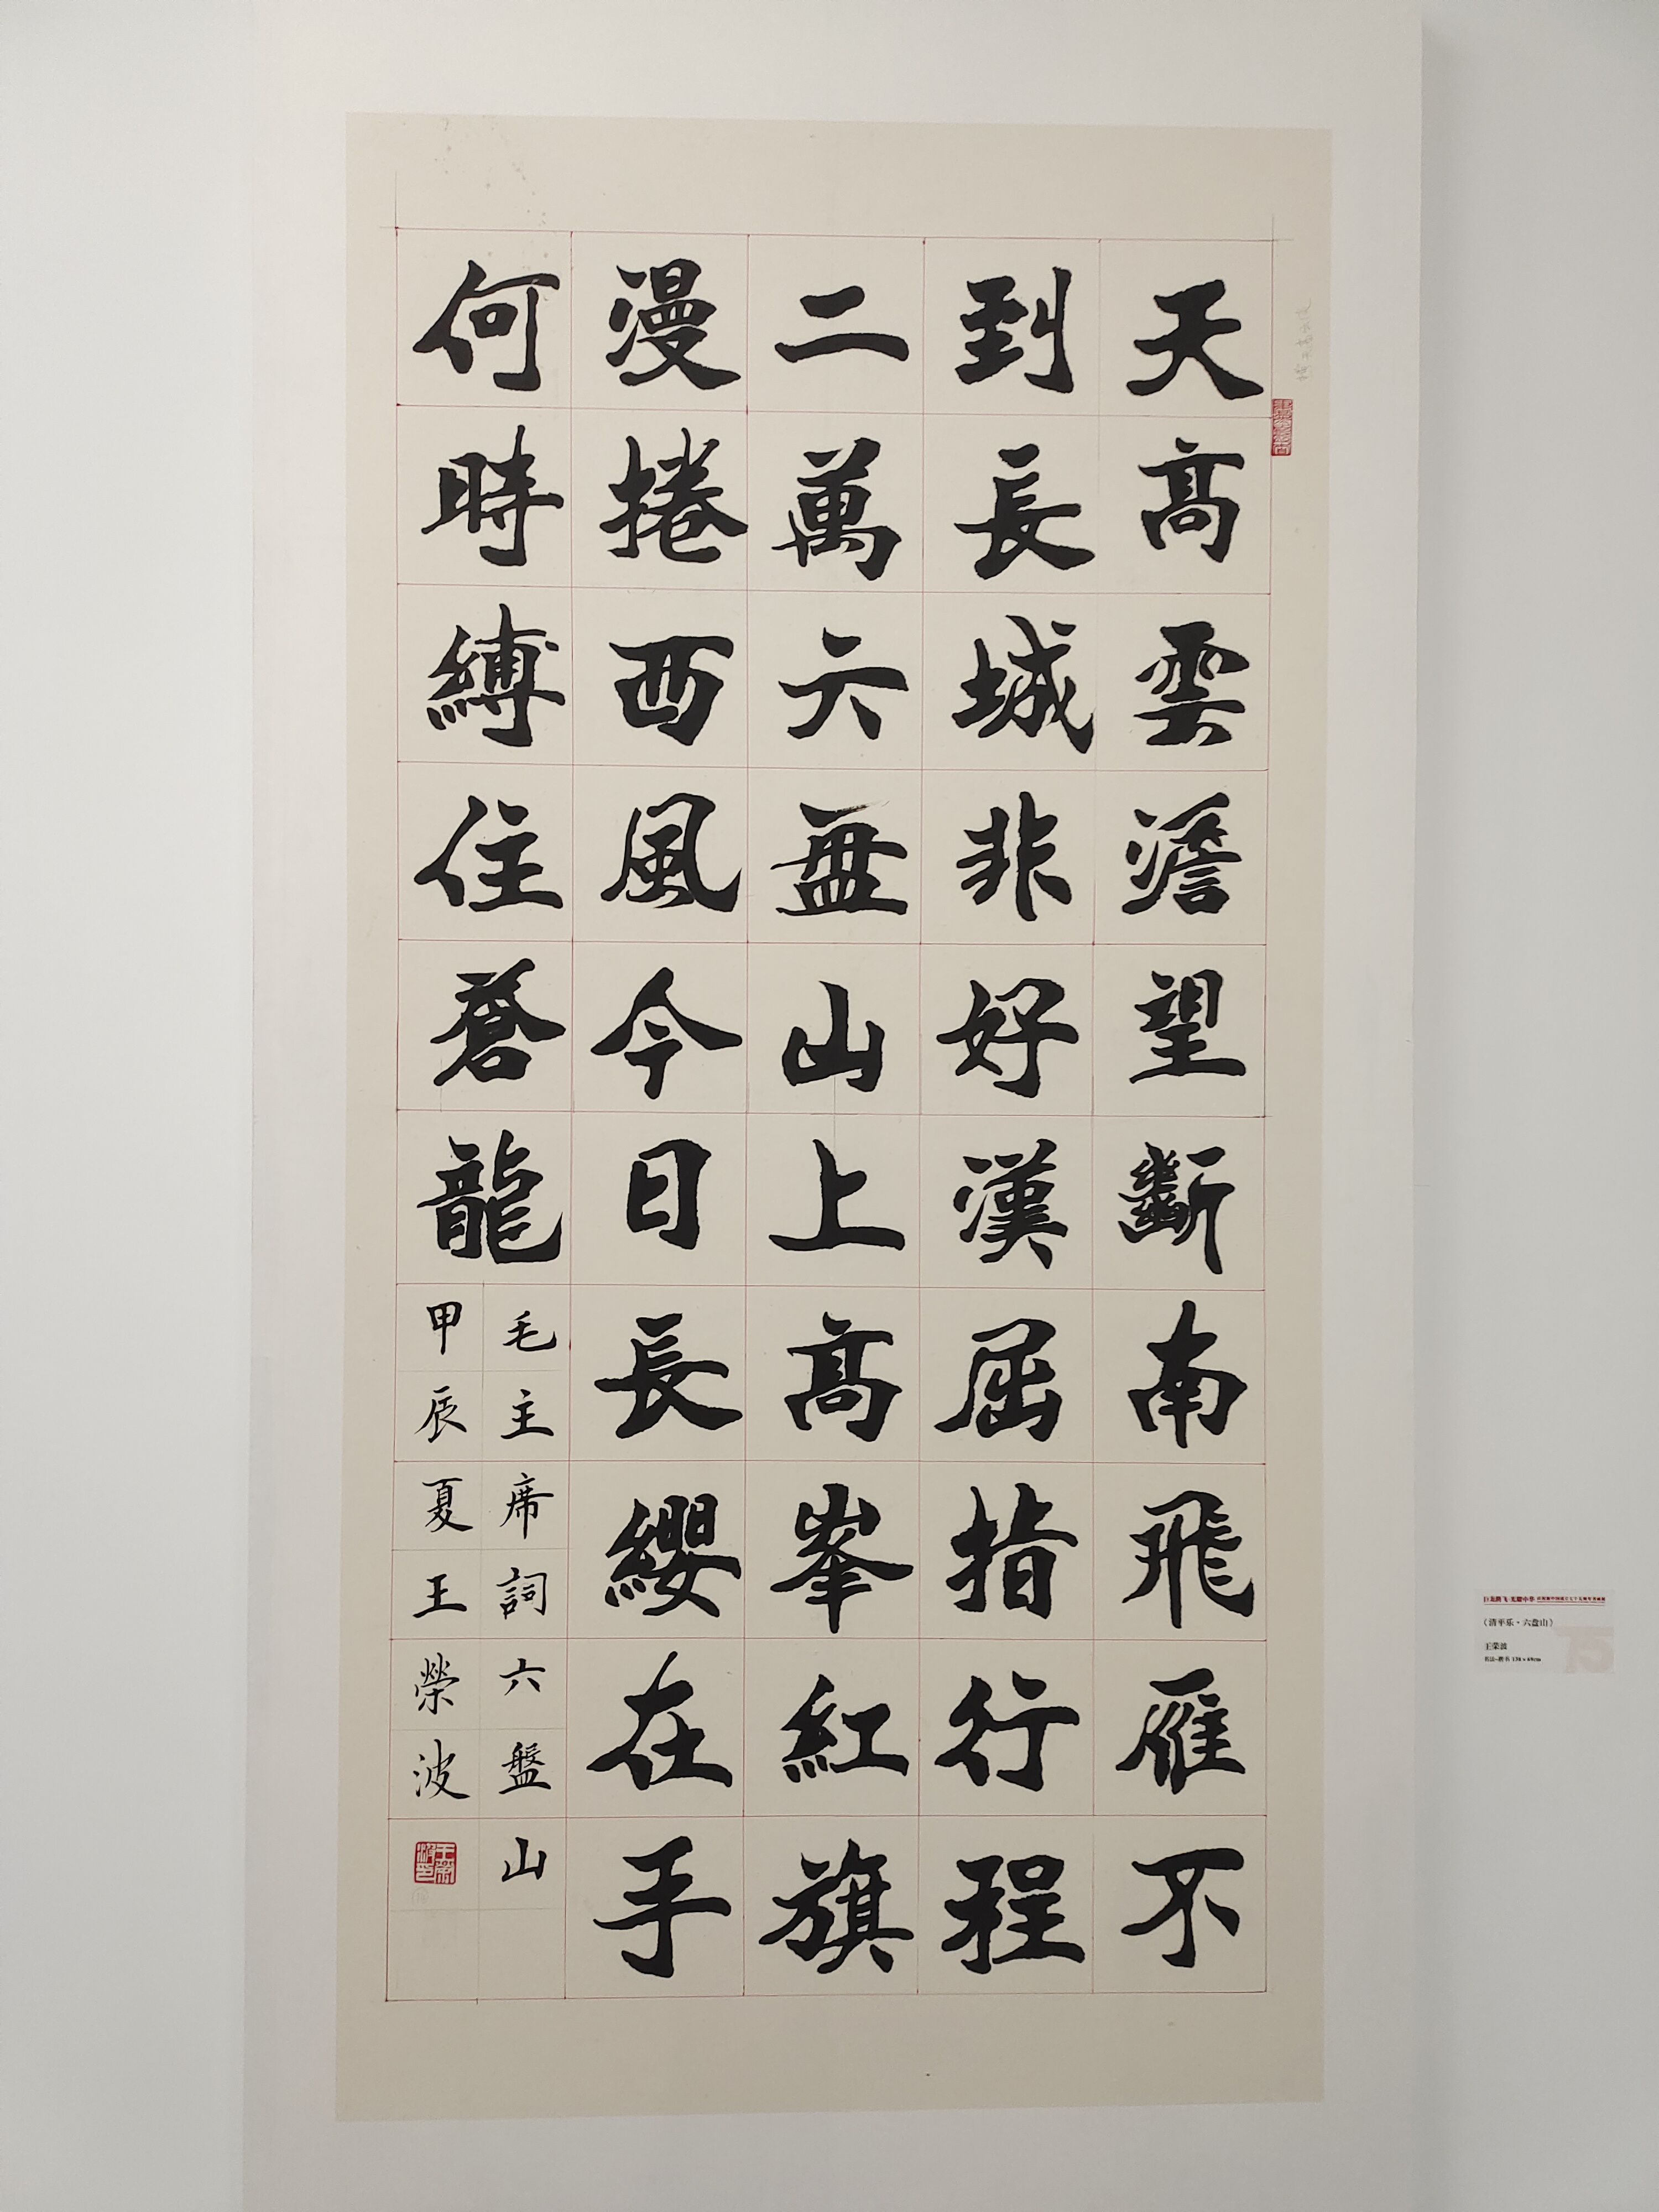 天高雲澹望斷南飛雁不
到長城非好漢屈指行程
二萬六盤山上高峯紅旗
漫捲西風今日長纓在手
何時縛住蒼龍
毛主席詞六盤山
甲辰夏王榮波
《清平乐·六盘山》
王荣波